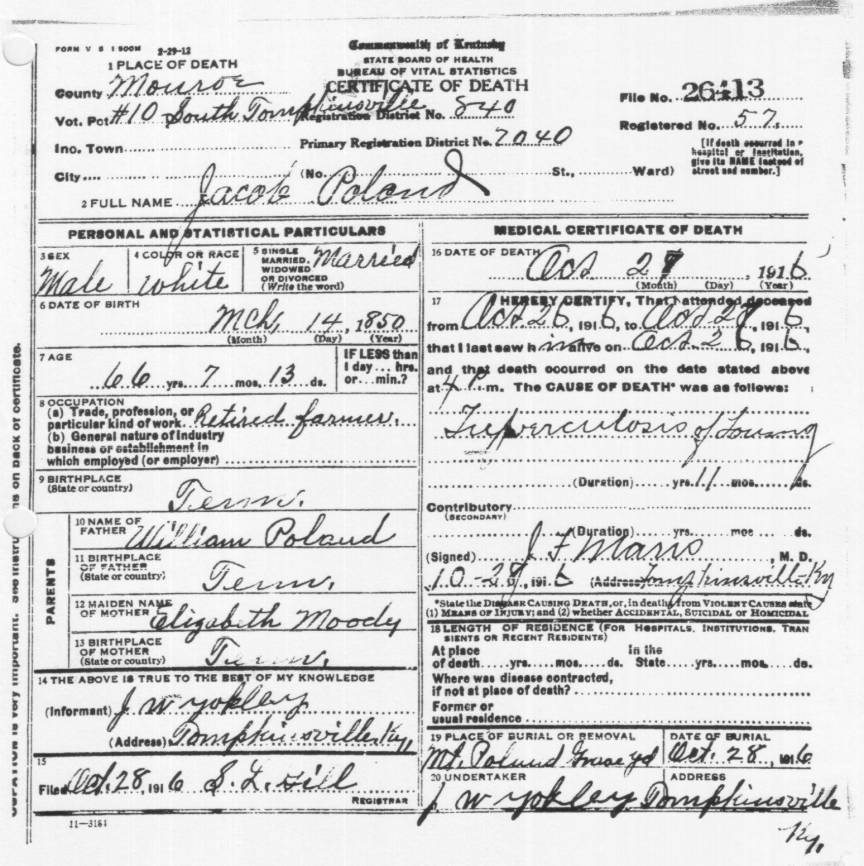 FORM V S 1 500M 2-29-12
Commonwealth of Kentucky
STATE BOARD OF HEALTH
BUREAU OF VITAL STATISTICS
CERTIFICATE OF DEATH
1 PLACE OF DEATH
County Monroe
Vot. Pct #10 South Tompkinsville Registration District No. 840
Inc. Town Primary Registration District No. 7040
City (No. St., Ward)
File No. 26413
Registered No. 57.
[If death occurred in
hospital or institution,
give its NAME instead of
street and number.]
2 FULL NAME Jacob Poland
PERSONAL AND STATISTICAL PARTICULARS
3 SEX
Male
4 COLOR OR RACE
White
5 SINGLE
MARRIED,
WIDOWED
OR DIVORCED
(Write the word)
Married
6 DATE OF BIRTH
Mch, 14, 1850
(Month) (Day) (Year)
7 AGE
66 yrs. 7 mos. 13 ds.
IF LESS than
1 day ... hrs.
or ... min.?
8 OCCUPATION
(a) Trade, profession, or
particular kind of work Retired farmer.
(b) General nature of industry
business or establishment in
which employed (or employer)
9 BIRTHPLACE
(State or country)
Tenn.
PARENTS
10 NAME OF
FATHER William Poland
11 BIRTHPLACE
OF FATHER
(State or country) Tenn.
12 MAIDEN NAME
OF MOTHER Elizabeth Moody
13 BIRTHPLACE
OF MOTHER
(State or country) Tenn.
14 THE ABOVE IS TRUE TO THE BEST OF MY KNOWLEDGE
(Informant) J W Yokley
(Address) Tompkinsville Ky
15
Filed Oct. 28, 1916 S. L. Hill
REGISTRAR
11-3184
MEDICAL CERTIFICATE OF DEATH
16 DATE OF DEATH
Oct 27, 1916
(Month) (Day) (Year)
17 I HEREBY CERTIFY, That I attended deceased
from Oct 26, 1916, to Oct 1916,
that I last saw him alive on Oct 26, 1916,
and that death occurred on the date stated above
at 4 P. m. The CAUSE OF DEATH* was as follows:
Tuberculosis of
(Duration) yrs. 11 mos. ds.
Contributory
(SECONDARY)
(Duration) yrs. mos ds.
(Signed) J F Marrs, M. D.
10-28, 1916 (Address) Tompkinsville Ky
*State the DISEASE CAUSING DEATH, or, in deaths from VIOLENT CAUSES state
(1) MEANS OF INJURY; and (2) whether ACCIDENTAL, SUICIDAL OF HOMICIDAL
18 LENGTH OF RESIDENCE (FOR HOSPITALS, INSTITUTIONS, TRAN
SIENTS OR RECENT RESIDENTS)
At place In the
of death yrs. mos. ds. State yrs. mos. ds.
Where was disease contracted,
if not at place of death?
Former or
usual residence
19 PLACE OF BURIAL OR REMOVAL
Mt. Poland Grave yd
DATE OF BURIAL
Oct. 28, 1916
20 UNDERTAKER
J W Yokley
ADDRESS
Tompkinsville
Ky.
on back of certificate.
is very important. See instruc